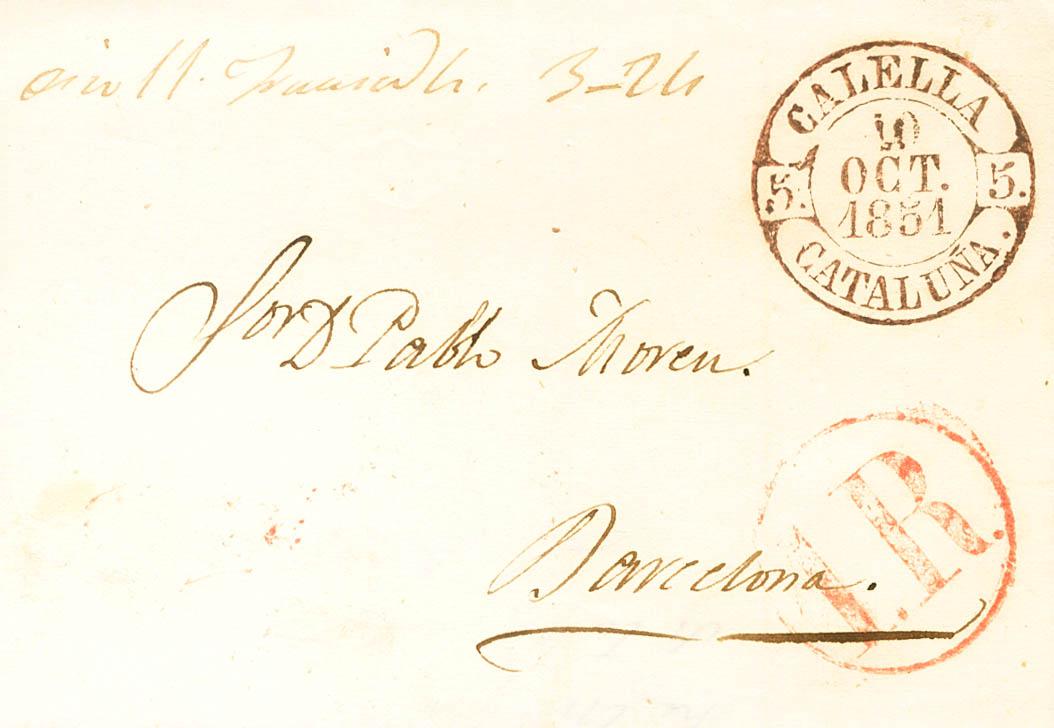 11. 3-24
CALELLA
10
OCT.
1851
5. 5.
CATALUÑA.
Sor D Pablo Moren.
1.R.
Barcelona.